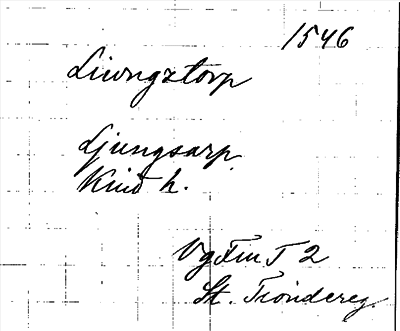 1546
Liungztorp
Ljungsarp
Kind h.
VgFm T 2
St. Tiondereg.